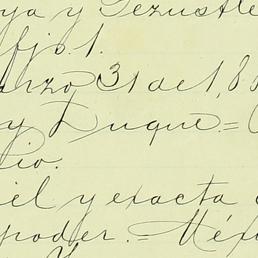 ya y Tezustle
fjs 1.
arzo 31 de 1,8
y Duque. =
cio.
iel y exacta
poder. = Méx